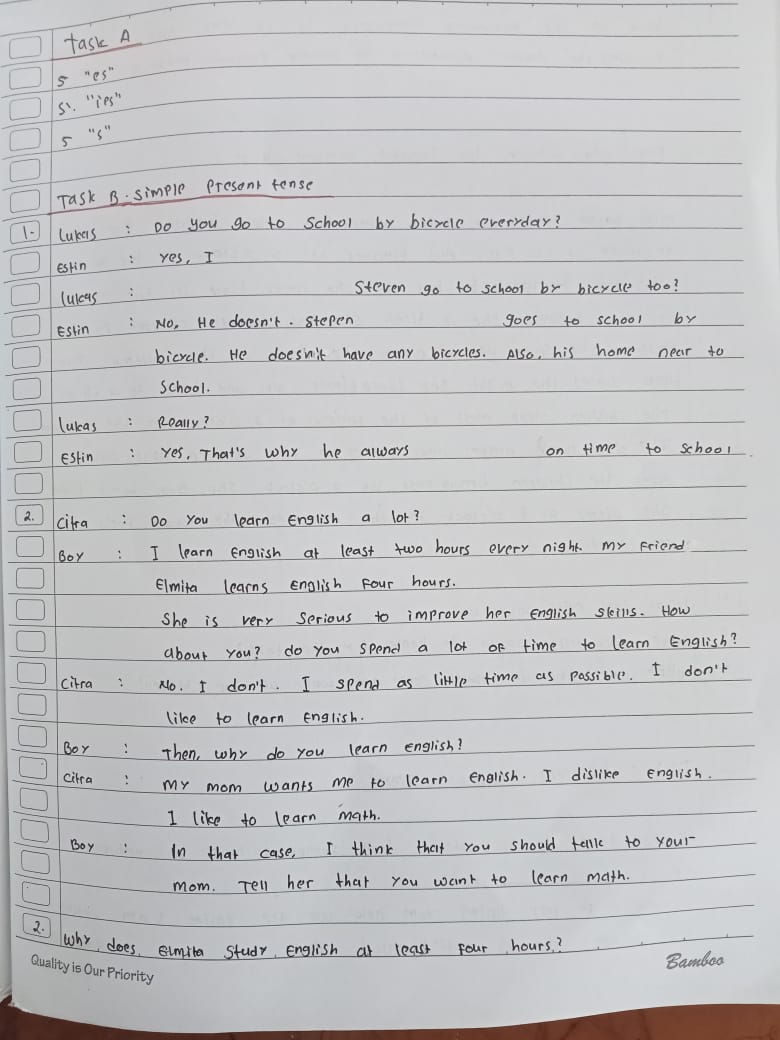 Task A
5 "es"
5. "ies"
5 "s"
Task B. Simple Present tense
1. Lukas : Do you go to School by bicycle everyday?
Estin : Yes, I
lukas : Steven go to school by bicycle too?
Estin : No, He doesn't. Stepen goes to school by
bicycle. He doesn't have any bicycles. Also, his home near to
School.
Lukas : Really?
Estin : Yes, That's why he always on time to school
2. Citra : Do you learn English a lot?
Boy : I learn English at least two hours every night. My Friend
Elmita learns English Four hours.
She is very serious to improve her English skills. How
about you? do you spend a lot of time to learn English?
Citra : No. I don't. I spend as little time as possible. I don't
like to learn English.
Boy : Then, why do you learn English?
Citra : My mom wants me to learn English. I dislike English.
I like to learn math.
Boy : In that case, I think that you should talk to your
mom. Tell her that you want to learn math.
2. Why does Elmita study English at least Four hours?
Quality is Our Priority
Bamboo